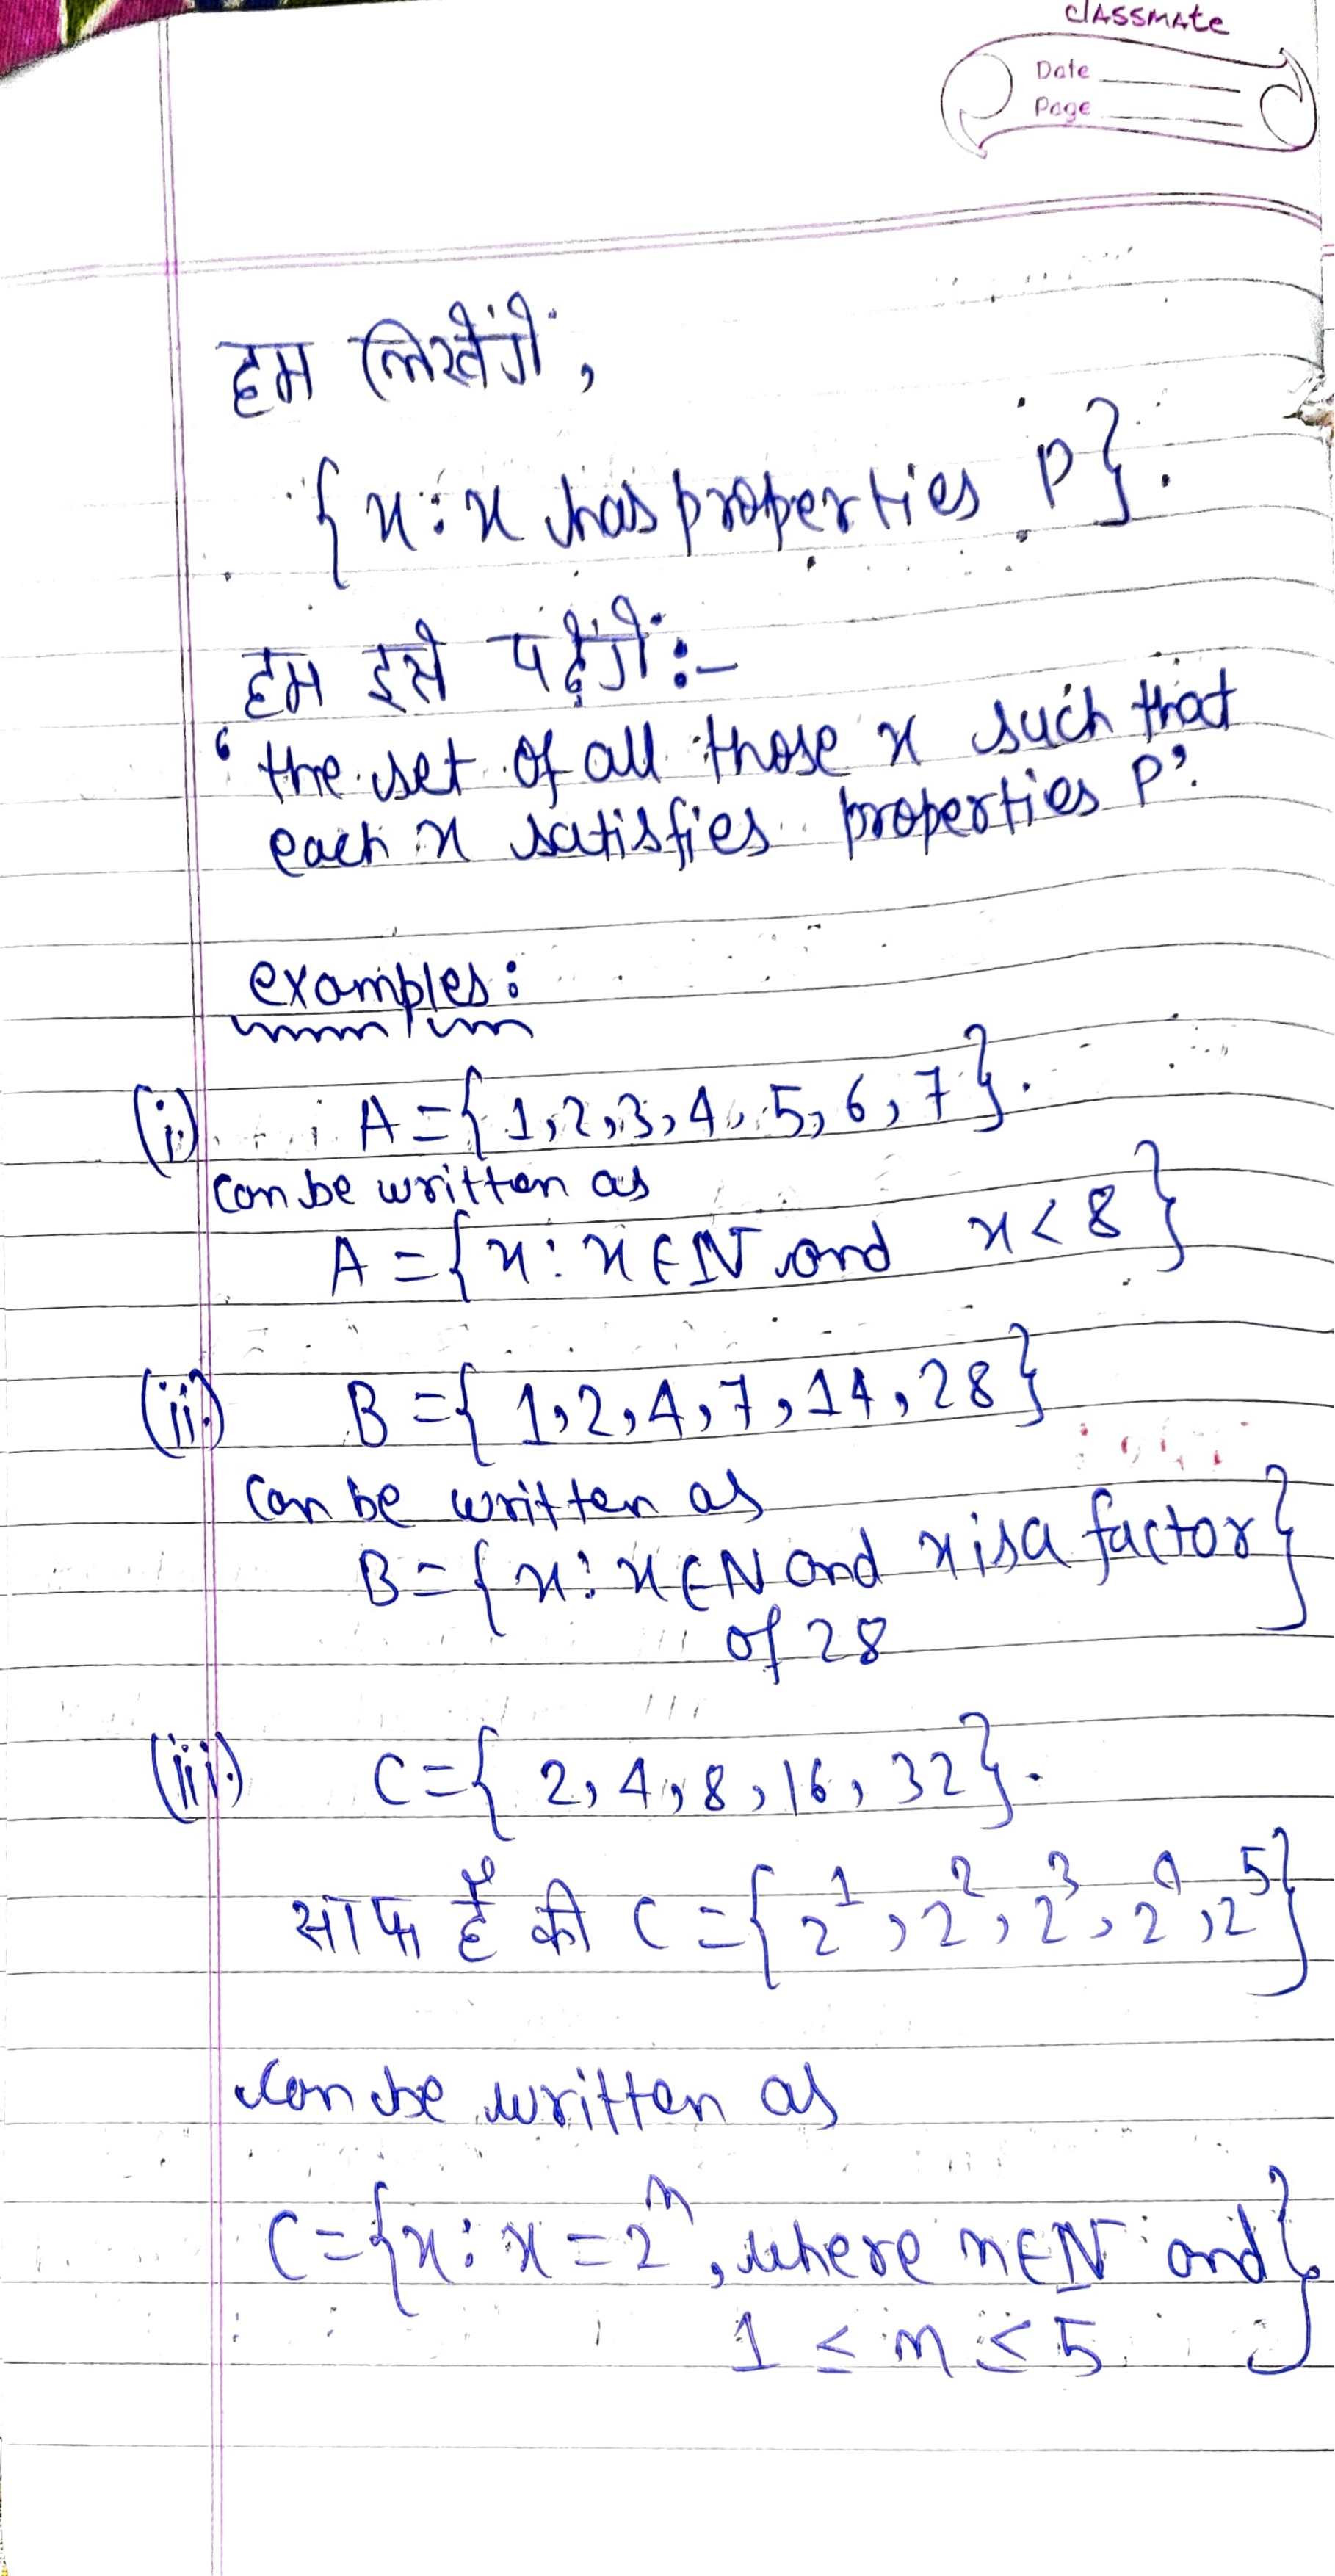 classmate
Date
Page
हम लिखेंगें,
{x : x has properties P}.
हम इसे पढ़ेंगें :-
‘the set of all those x such that
each x satisfies properties P’.
examples :
(i.) A = { 1, 2, 3, 4, 5, 6, 7 }.
can be written as
A = { x : x ∈ N and x < 8 }
(ii.) B = { 1, 2, 4, 7, 14, 28 }
can be written as
B = { x : x ∈ N and x is a factor }
of 28
(iii.) C = { 2, 4, 8, 16, 32 }.
साफ हैं की C = { 2¹, 2², 2³, 2⁴, 2⁵ }
can be written as
C = { x : x = 2ⁿ, where n ∈ N and }
1 ≤ n ≤ 5